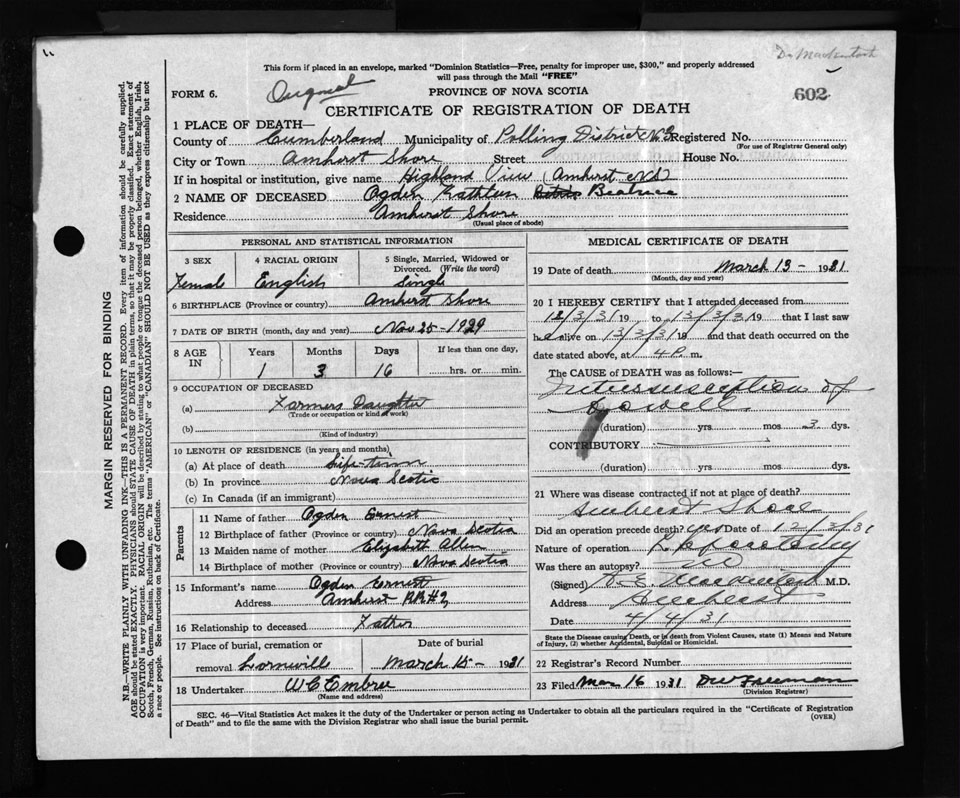 Dr Mackintosh
This form if placed in an envelope, marked "Dominion Statistics—Free, penalty for improper use, $300," and properly addressed
will pass through the Mail "FREE"
FORM 6.
Original
PROVINCE OF NOVA SCOTIA
602
CERTIFICATE OF REGISTRATION OF DEATH
1 PLACE OF DEATH—
County of Cumberland Municipality of Polling District No Registered No.
(For use of Registrar General only)
City or Town Amherst Shore Street House No.
If in hospital or institution, give name Highland View (Amherst NS)
2 NAME OF DECEASED Ogden Kathleen Beatrice
Residence Amherst Shore
(Usual place of abode)
PERSONAL AND STATISTICAL INFORMATION
3 SEX
Female
4 RACIAL ORIGIN
English
5 Single, Married, Widowed or
Divorced. (Write the word)
Single
6 BIRTHPLACE (Province or country) Amherst Shore
7 DATE OF BIRTH (month, day and year) Nov 25 - 1929
8 AGE IN
Years Months Days If less than one day,
1 3 16 hrs. or min.
9 OCCUPATION OF DECEASED
(a) Farmers Daughter
(Trade or occupation or kind of work)
(b)
(Kind of industry)
10 LENGTH OF RESIDENCE (in years and months)
(a) At place of death Life-time
(b) In province Nova Scotia
(c) In Canada (if an immigrant)
Parents
11 Name of father Ogden Ernest
12 Birthplace of father (Province or country) Nova Scotia
13 Maiden name of mother Elizabeth Allen
14 Birthplace of mother (Province or country) Nova Scotia
15 Informant's name Ogden Ernest
Address Amherst RR#2
16 Relationship to deceased Father
17 Place of burial, cremation or Date of burial
removal Lorneville March 15 - 1931
18 Undertaker W C Embree
(Name and address)
MEDICAL CERTIFICATE OF DEATH
19 Date of death March 13 - 1931
(Month, day and year)
20 I HEREBY CERTIFY that I attended deceased from
12/3/31 19 to 13/3/31 19 that I last saw
h alive on 13/3/31 19 and that death occurred on the
date stated above, at 4 P. m.
The CAUSE of DEATH was as follows:
Intussusception of
bowell
(duration) yrs mos 3 dys.
CONTRIBUTORY
(duration) yrs. mos. dys.
21 Where was disease contracted if not at place of death?
Amherst Shore
Did an operation precede death? yes Date of 12/3/31
Nature of operation Laporotomy
Was there an autopsy? no
(Signed) Mackintosh M.D.
Address Amherst
Date 4/4/31
State the Disease causing Death, or in death from Violent Causes, state (1) Means and Nature
of Injury, (2) whether Accidental, Suicidal or Homicidal.
22 Registrar's Record Number
23 Filed Mar 16 1931 DW Freeman
(Division Registrar)
SEC. 46—Vital Statistics Act makes it the duty of the Undertaker or person acting as Undertaker to obtain all the particulars required in the "Certificate of Registration
of Death" and to file the same with the Division Registrar who shall issue the burial permit.
(OVER)
MARGIN RESERVED FOR BINDING
N.B.—WRITE PLAINLY WITH UNFADING INK—THIS IS A PERMANENT RECORD. Every item of information should be carefully supplied.
AGE should be stated EXACTLY. PHYSICIANS should STATE CAUSE OF DEATH in plain terms, so that it may be properly classified. Exact statement of
OCCUPATION is very important. RACIAL ORIGIN will be described by stating to what people or tongue the deceased person belonged, whether English, Irish,
Scotch, French, German, Russian, Ruthenian, etc. The terms "AMERICAN" or "CANADIAN" SHOULD NOT BE USED as they express citizenship but not
a race or people. See instructions on back of Certificate.